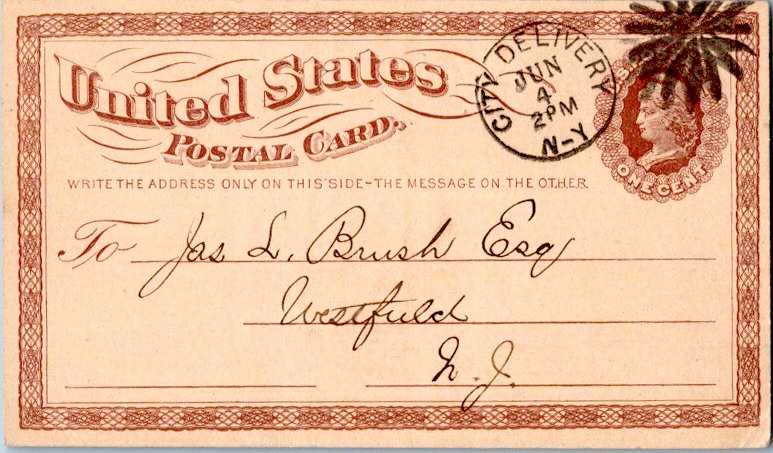 United States
POSTAL CARD.
CITY DELIVERY
JUN
4
2PM
N-Y
ONE CENT
WRITE THE ADDRESS ONLY ON THIS SIDE-THE MESSAGE ON THE OTHER.
To Jas. L. Brush Esq
Westfield
N. J.